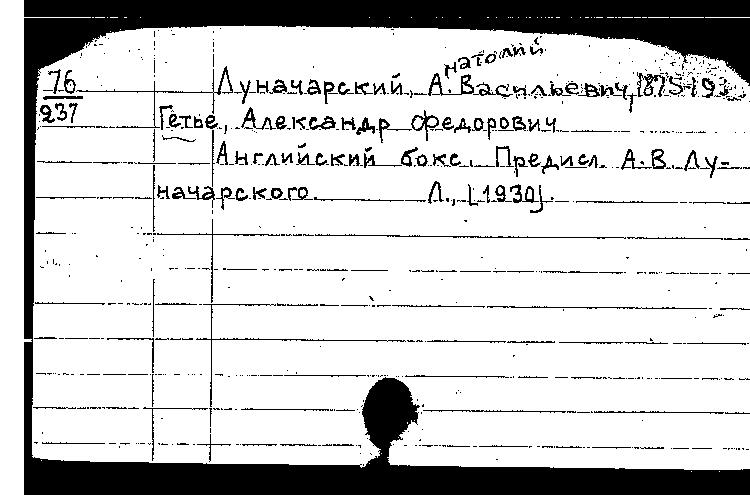 76
237
Луначарский, Анатолий Васильевич, 1875-193
Гетье, Александр Федорович
Английский бокс. Предисл. А.В. Лу-
начарского. Л., [1930].